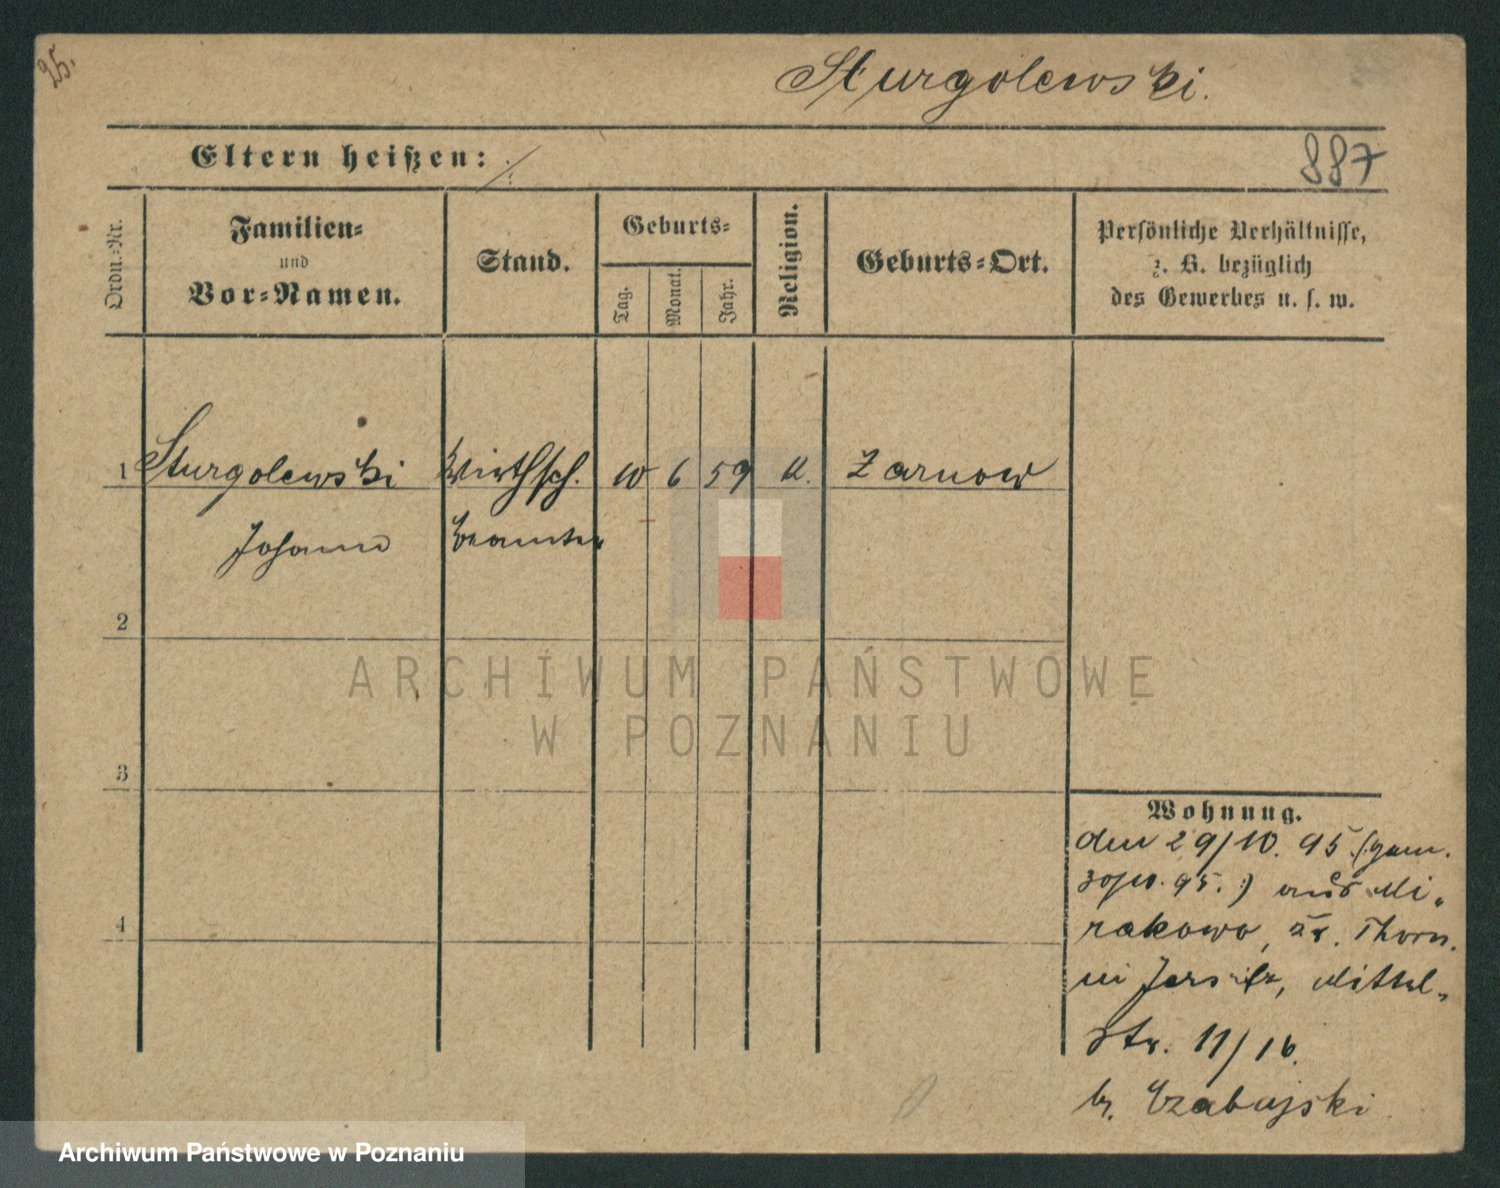 25.
Sturgolewski.
Eltern heißen:
887
Ordn.-Nr.
Familien-
und
Vor-Namen.
Stand.
Geburts-
Tag.
Monat.
Jahr.
Religion.
Geburts-Ort.
Persönliche Verhältnisse,
z. B. bezüglich
des Gewerbes u. s. w.
1 Sturgolewski Wirthsch. 10 6 59 K. Zarnow
Johann beamter
2
3
4
Wohnung.
den 29/10. 95 (gem.
95.) aus Mi-
rakowo, Kr. Thorn.
in Jersitz, Mittel-
Str. 11/16.
b. Czabajski
ARCHIWUM PAŃSTWOWE
W POZNANIU
Archiwum Państwowe w Poznaniu